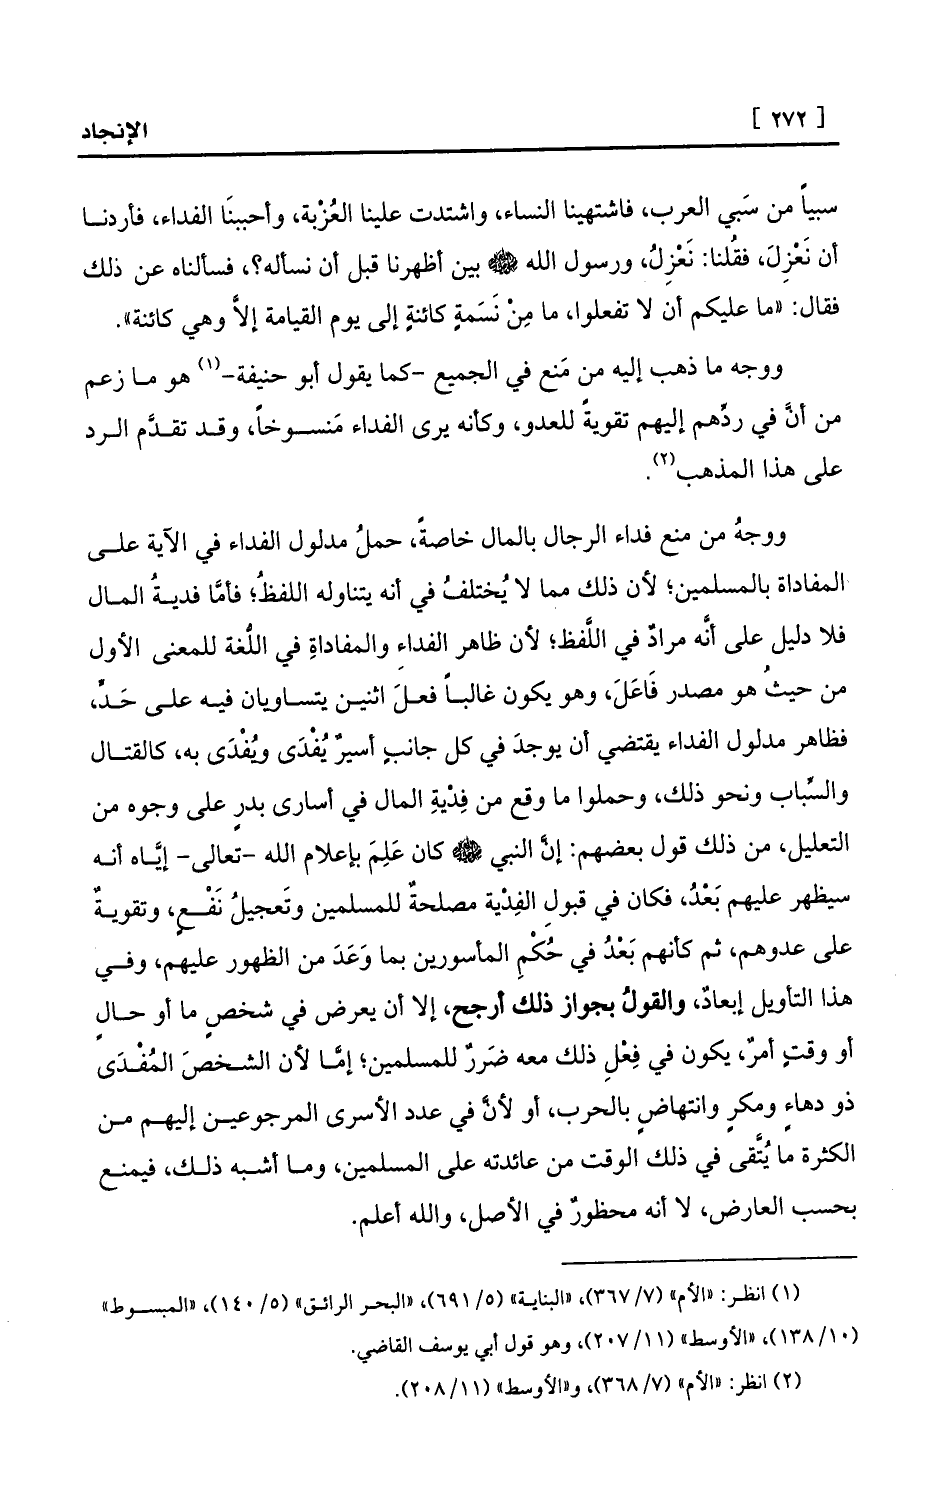 [ ٢٧٢ ]
الإنجاد
سبياً من سَبي العرب، فاشتهينا النساء، واشتدت علينا العُزْبة، وأحببنَا الفداء، فأردنا
أن نَعْزِلَ، فقُلنا: نَعْزِلُ، ورسول الله ﷺ بين أظهرنا قبل أن نسأله؟، فسألناه عن ذلك
فقال: «ما عليكم أن لا تفعلوا، ما مِنْ نَسَمةٍ كائنةٍ إلى يوم القيامة إلاَّ وهي كائنة».
ووجه ما ذهب إليه من مَنع في الجميع -كما يقول أبو حنيفة-(١) هو ما زعم
من أنَّ في ردِّهم إليهم تقويةً للعدو، وكأنه يرى الفداء مَنسوخاً، وقد تقدَّم الرد
على هذا المذهب(٢).
ووجهُ من منع فداء الرجال بالمال خاصةً، حملُ مدلول الفداء في الآية على
المفاداة بالمسلمين؛ لأن ذلك مما لا يُختلفُ في أنه يتناوله اللفظُ؛ فأمَّا فديةُ المال
فلا دليل على أنَّه مرادٌ في اللَّفظ؛ لأن ظاهر الفداء والمفاداةِ في اللُّغة للمعنى الأول
من حيثُ هو مصدر فَاعَلَ، وهو يكون غالباً فعلَ اثنين يتساويان فيه على حَدٍّ،
فظاهر مدلول الفداء يقتضي أن يوجدَ في كل جانبٍ أسيرٌ يُفْدَى ويُفْدَى به، كالقتال
والسِّباب ونحو ذلك، وحملوا ما وقع من فِدْيةِ المال في أسارى بدرٍ على وجوه من
التعليل، من ذلك قول بعضهم: إنَّ النبي ﷺ كان عَلِمَ بإعلام الله -تعالى- إيَّاه أنه
سيظهر عليهم بَعْدُ، فكان في قبول الفِدْية مصلحةٌ للمسلمين وتَعجيلُ نَفْعٍ، وتقويةٌ
على عدوهم، ثم كأنهم بَعْدُ في حُكْمِ المأسورين بما وَعَدَ من الظهور عليهم، وفي
هذا التأويل إبعادٌ، والقولُ بجواز ذلك أرجح، إلا أن يعرض في شخصٍ ما أو حالٍ
أو وقتٍ أمرٌ، يكون في فِعْلِ ذلك معه ضَررٌ للمسلمين؛ إمَّا لأن الشخصَ المُفْدَى
ذو دهاءٍ ومكرٍ وانتهاضٍ بالحرب، أو لأنَّ في عدد الأسرى المرجوعين إليهم من
الكثرة ما يُتَّقى في ذلك الوقت من عائدته على المسلمين، وما أشبه ذلك، فيمنع
بحسب العارض، لا أنه محظورٌ في الأصل، والله أعلم.
(١) انظر: «الأم» (٧/ ٣٦٧)، «البناية» (٥/ ٦٩١)، «البحر الرائق» (٥/ ١٤٠)، «المبسوط»
(١٠/ ١٣٨)، «الأوسط» (١١/ ٢٠٧)، وهو قول أبي يوسف القاضي.
(٢) انظر: «الأم» (٧/ ٣٦٨)، و«الأوسط» (١١/ ٢٠٨).